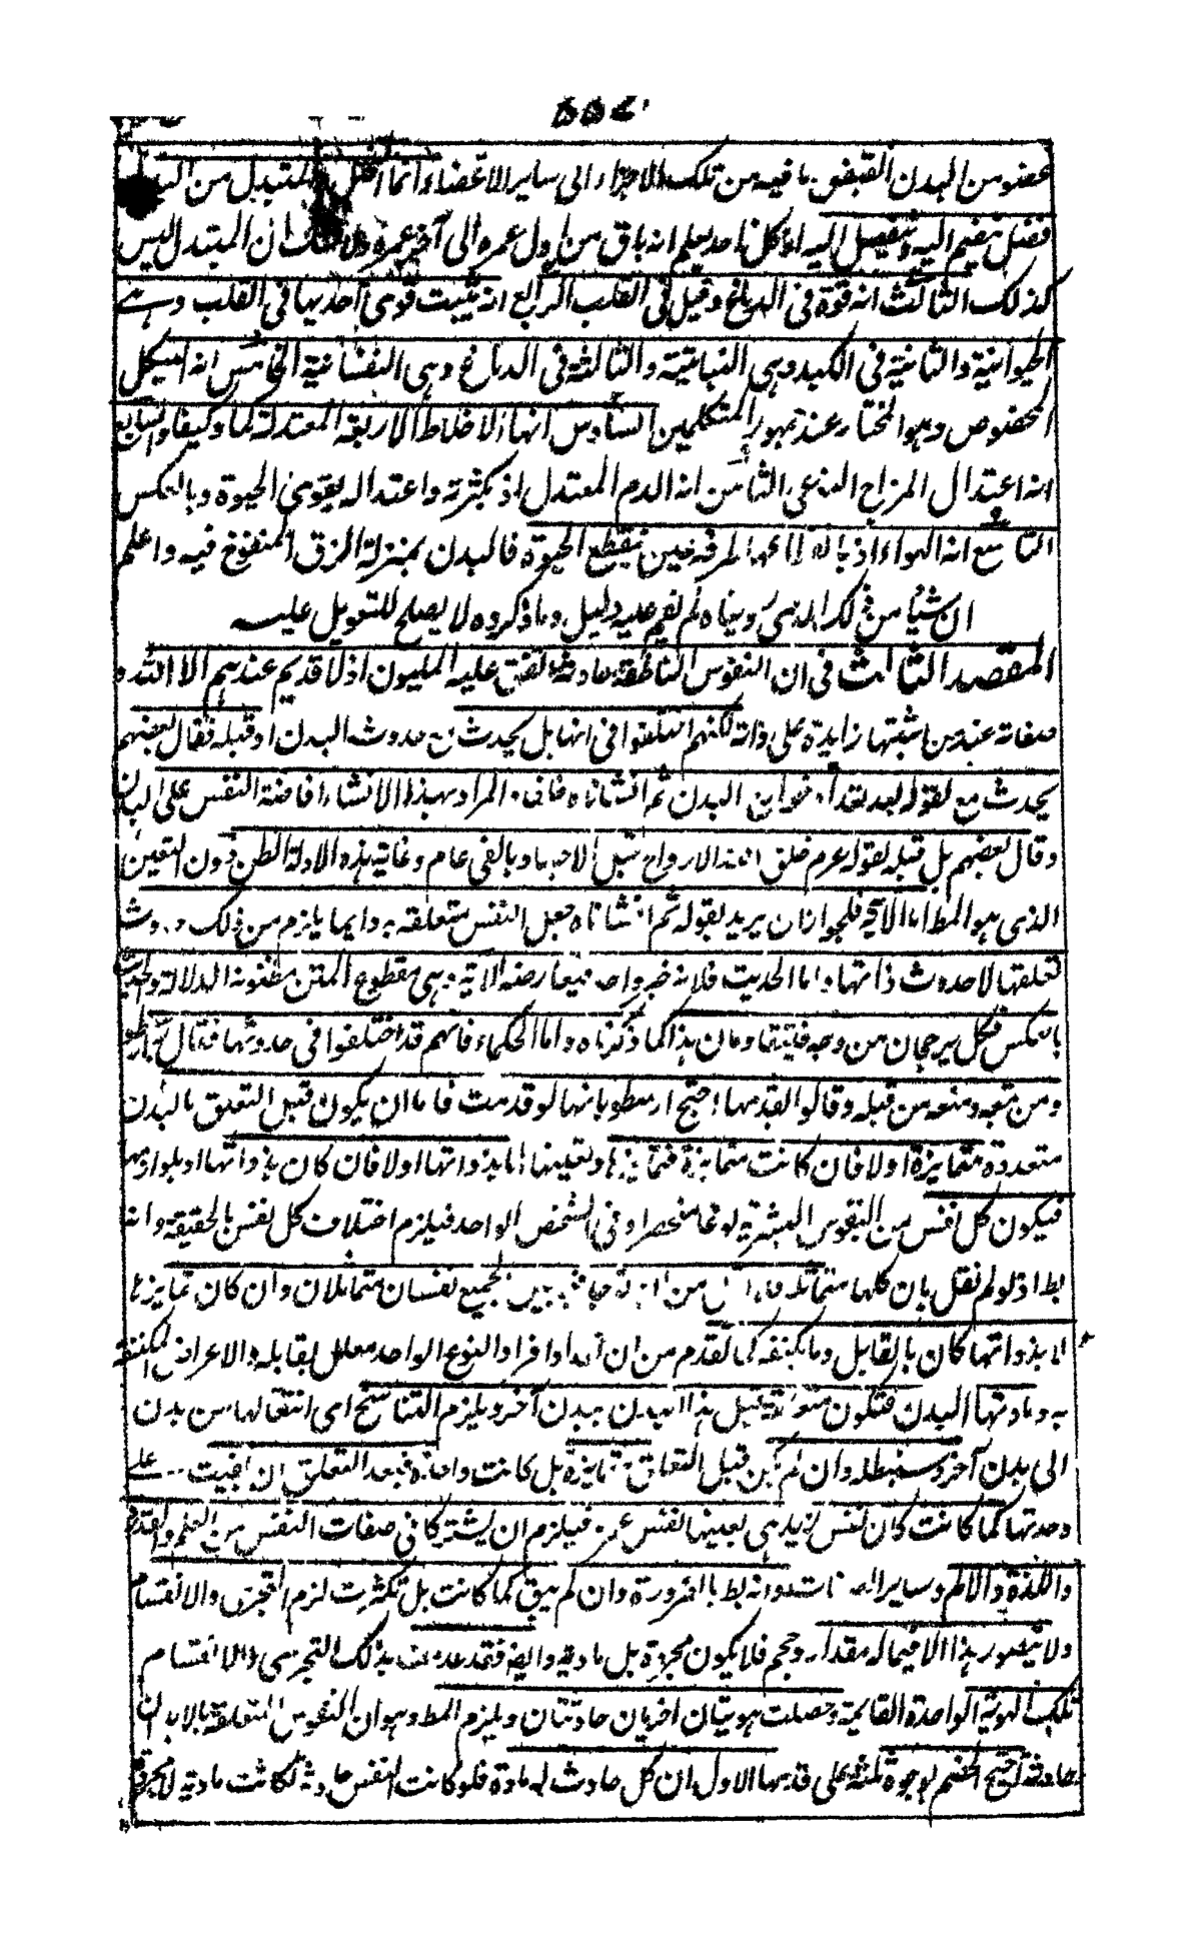 عضو من البدن القبض ما فيه من تلك الاجزاء الى ساير الاعضاء انما المتبدل من
فضل ينضم اليه وينفصل اليه اذ كل احد يعلم انه باق من اول عمره الى آخر عمره ولا شك ان المتبدل ليس
كذلك الثالث انه قوة فى الدماغ وقيل فى القلب الرابع انه ثلث قوى احديها فى القلب وهے
الحيوانية والثانية فى الكبد وهى النباتية والثالثة فى الدماغ وهى النفسانية الخامس انه الهيكل
المخصوص وهو المختار عند جمهور المتكلمين السادس انها الاخلاط الاربعة المعتدلة كما وكيفا والسابع
انه اعتدال المزاج النوعى الثامن انه الدم المعتدل اذ بكثرته واعتداله يقوى الحيوة وبالعكس
التاسع انه الهواء اذ بانقطاعه طرفة عين ينقطع الحيوة فالبدن بمنزلة الزق المنفوخ فيه واعلم
ان شيئا من ذلك الذى رويناه لم يقم عليه دليل وما ذكروه لا يصلح للتعويل عليه
المقصد الثالث فى ان النفوس الناطقة حادثة اتفق عليه المليون اذ لا قديم عندهم الا الله و
صفاته عند من اثبتها زايدة على ذاته لكنهم اختلفوا فى انها هل يحدث مع حدوث البدن او قبله فقال بعضهم
يحدث مع لقوله بعد تعداد اطوار البدن ثم انشاناه خلقا آخر المراد بهذا الانشاء افاضة النفس على البدن
وقال بعضهم بل قبله لقوله عم خلق الله الارواح قبل الاجساد بالفى عام وغاية هذه الادلة الظن دون اليقين
الذى هو المط اما الآية فلجواز ان يريد بقوله ثم انشاناه جعل النفس متعلقة به وانما يلزم من ذلك حدوث
تعلقها لا حدوث ذاتها واما الحديث فلانه خبر واحد فيعارضه الآية وهى مقطوع المتن مظنونة الدلالة والحديث
بالعكس فلكل رجحان من وجه فيتقاومان هذا كما ذكرناه واما الحكماء فانهم قد اختلفوا فى حدوثها فقال به ارسطو
ومن تبعه ومنعه من قبله وقالوا بقدمها احتج ارسطو بانها لو قدمت فاما ان يكون قبل التعلق بالبدن
متعددة متمايزة اولا فان كانت متمايزة فتمايزها وتعينها اما بذواتها اولا فان كان بذواتها او بلوازمها
فيكون كل نفس من النفوس البشرية نوعا منحصرا فى الشخص الواحد فيلزم اختلاف كل نفس بالحقيقة وانه
بط اذ لو لم نقل بان كلها متماثلة فلا اقل من ان يوجد بين الجميع نفسان متماثلان وان كان تمايزها
لا بذواتها كان بالقابل وما يكتنفه لما تقدم من ان تعدد افراد النوع الواحد معلل بقابله والاعراض المكتنفة
به ومادتها البدن فتكون متعلقة قبل هذا البدن ببدن آخر ويلزم التناسخ اى انتقالها من بدن
الى بدن آخر وسنبطله وان لم يكن قبل التعلق متمايزة بل كانت واحدة فبعد التعلق ان بقيت على
وحدتها كما كانت كان نفس زيد هى بعينها نفس عمرو فيلزم ان يشتركا فى صفات النفس من العلم والقدرة
واللذة والالم وساير الصفات وانه بط بالضرورة وان لم يبق كما كانت بل تكثرت لزم التجزى والانقسام
ولا يتصور هذا الا فيما له مقدار وحجم فلا يكون مجردة بل مادية وايضا فقد عدمت بذلك التجزى والانقسام
تلك الهوية الواحدة القائمة وحصلت هويتان اخريان حادثتان ويلزم المط وهو ان النفوس المتعلقة بالابدان
حادثة احتج الخصم بوجوه ثلثة على قدمها الاول ان كل حادث له مادة فلو كانت النفس حادثة لكانت مادية لا مجردة